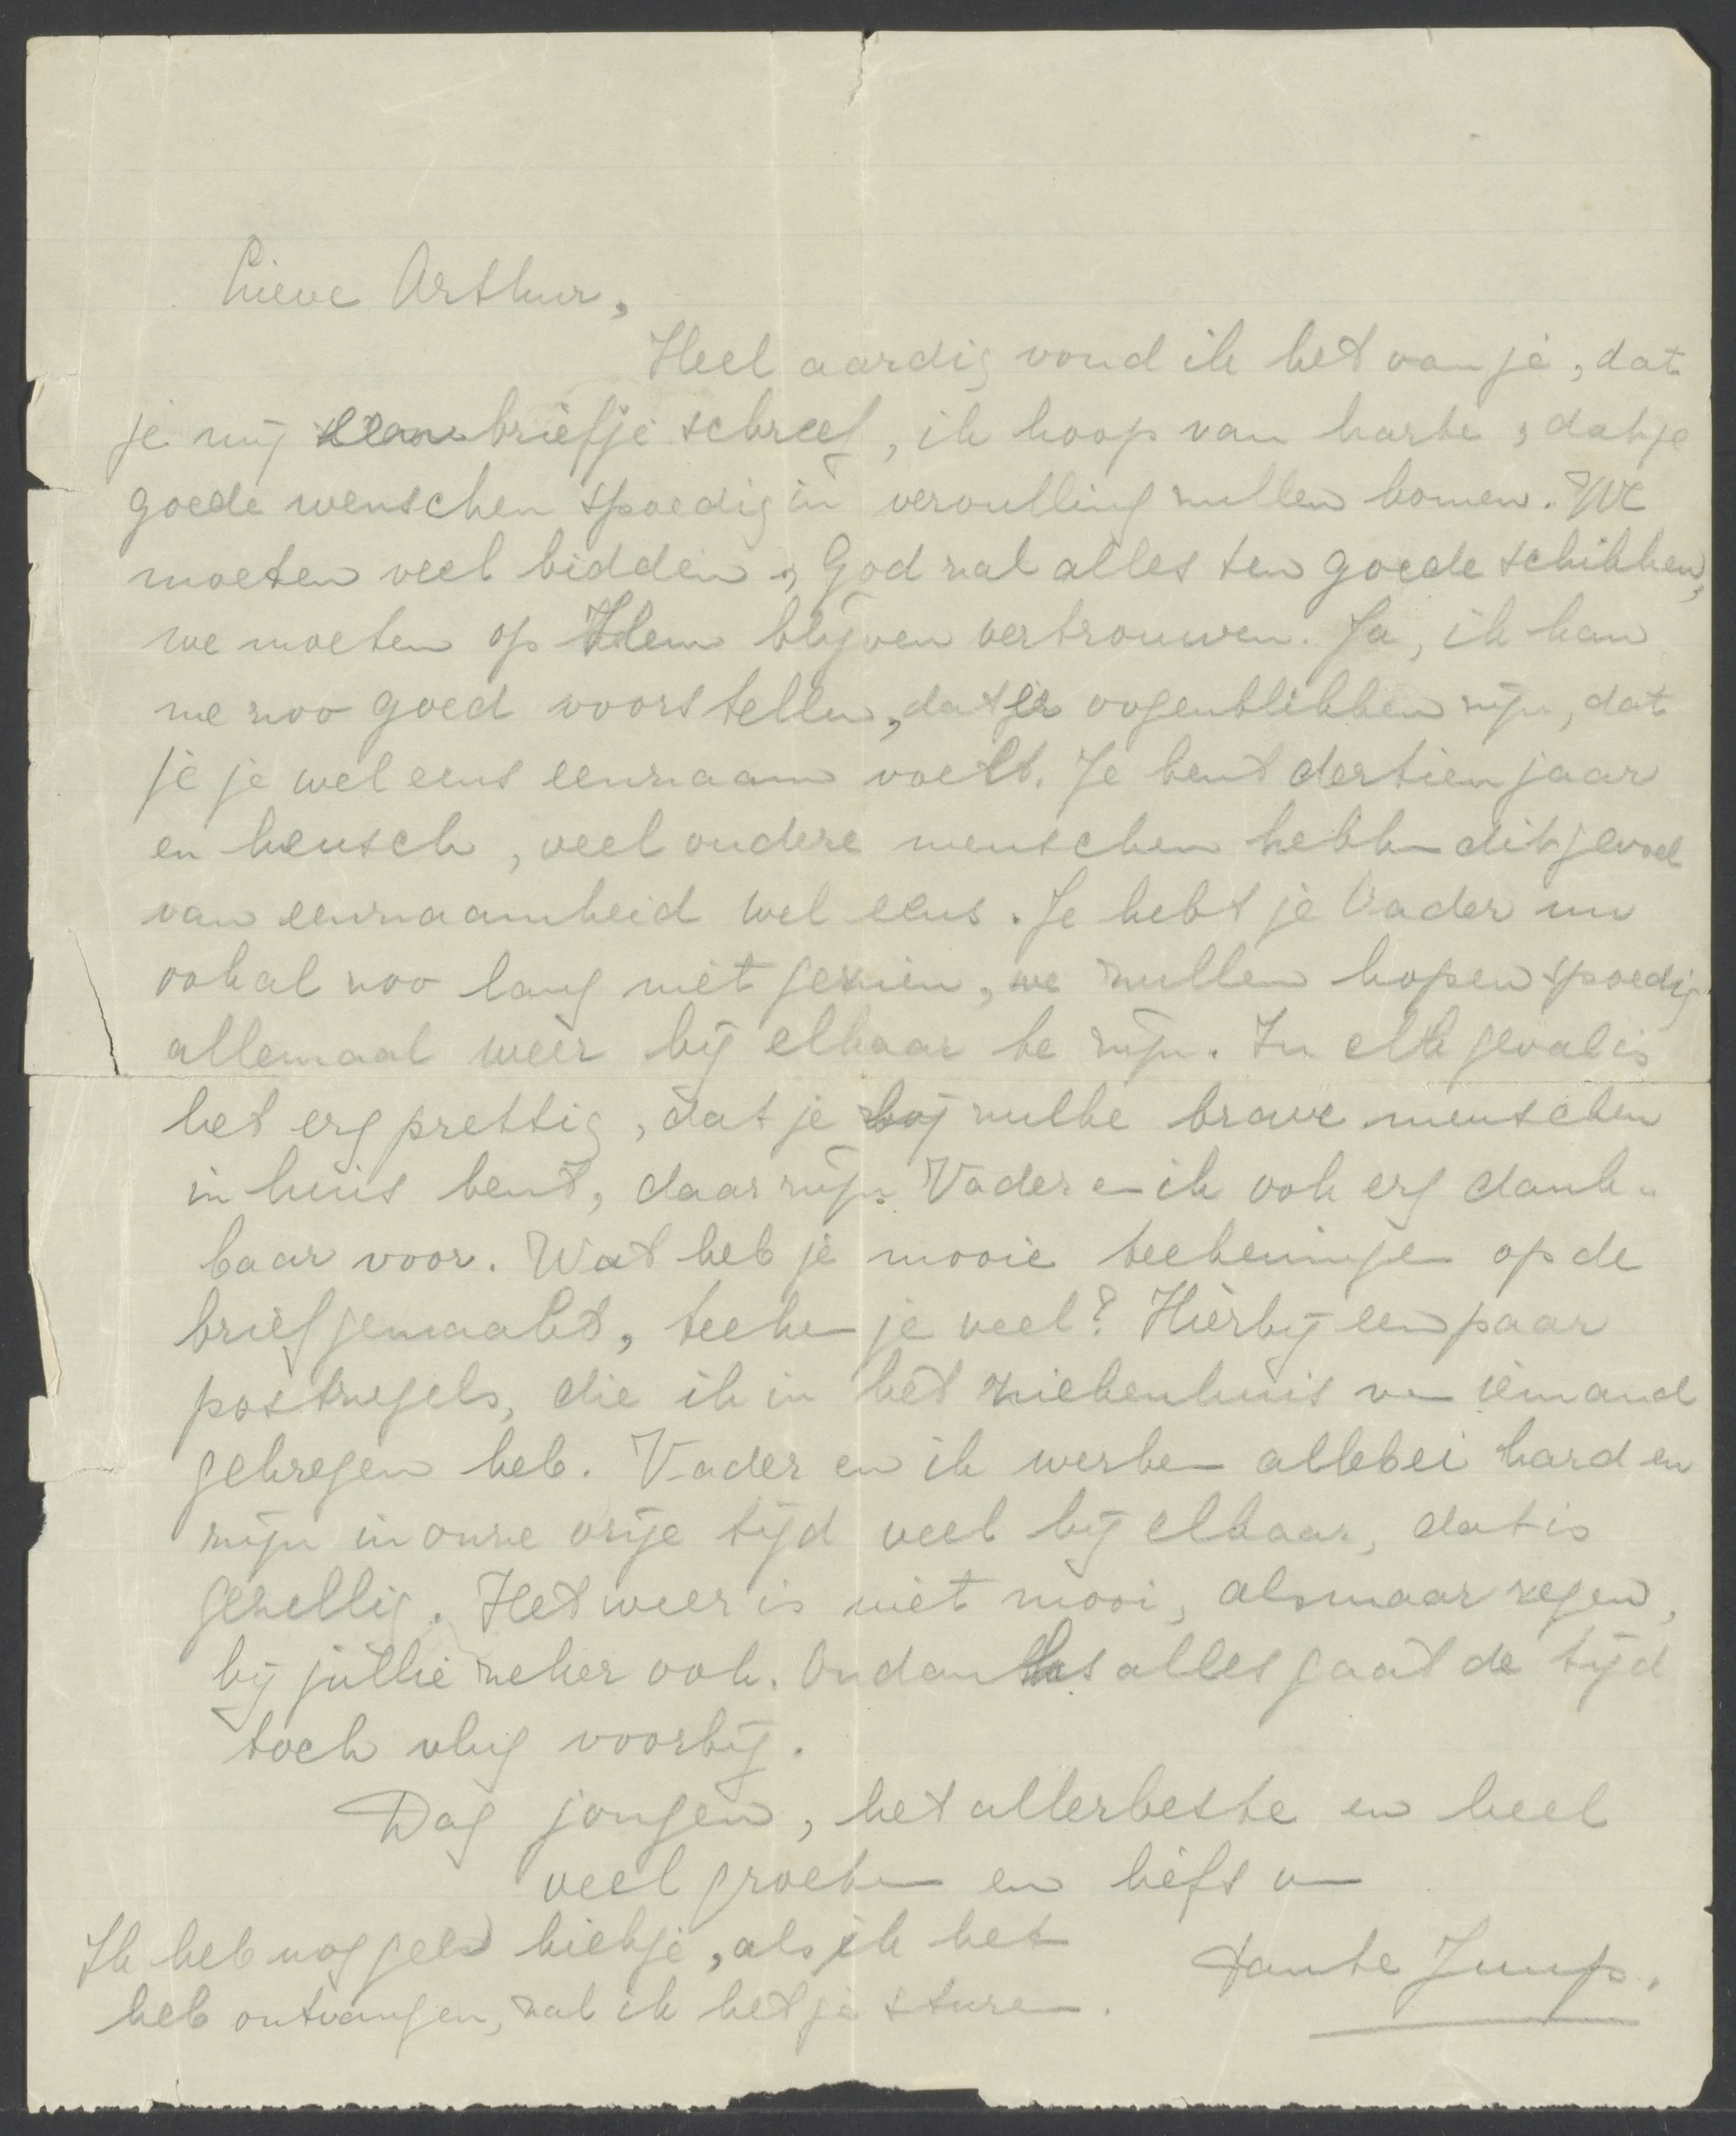 Lieve Arthur,
Heel aardig vond ik het van je, dat
je mij een briefje schreef, ik hoop van harte, dat je
goede wenschen spoedig in vervulling zullen komen. We
moeten veel bidden, God zal alles ten goede schikken,
we moeten op Hem blijven vertrouwen. Ja, ik kan
me zoo goed voorstellen, dat er oogenblikken zijn, dat
je je wel eens eenzaam voelt. Je bent dertien jaar
en heusch, veel oudere menschen hebben dit gevoel
van eenzaamheid wel eens. Je hebt je Vader nu
ook al zoo lang niet gezien, we zullen hopen spoedig
allemaal weer bij elkaar te zijn. In elk geval is
het erg prettig, dat je bij zulke brave menschen
in huis bent, daar zijn Vader en ik ook erg dank-
baar voor. Wat heb je mooie teekeningen op de
brief gemaakt, teeken je veel? Hierbij een paar
postzegels, die ik in het ziekenhuis van iemand
gekregen heb. Vader en ik werken allebei hard en
zijn in onze vrije tijd veel bij elkaar, dat is
gezellig. Het weer is niet mooi, alsmaar regen,
bij jullie zeker ook. Ondanks alles gaat de tijd
toch vlug voorbij.
Dag jongen, het allerbeste en heel
veel groeten en liefs van
Tante Juup.
Ik heb nog geen kiekje, als ik het
heb ontvangen, zal ik het je sturen.